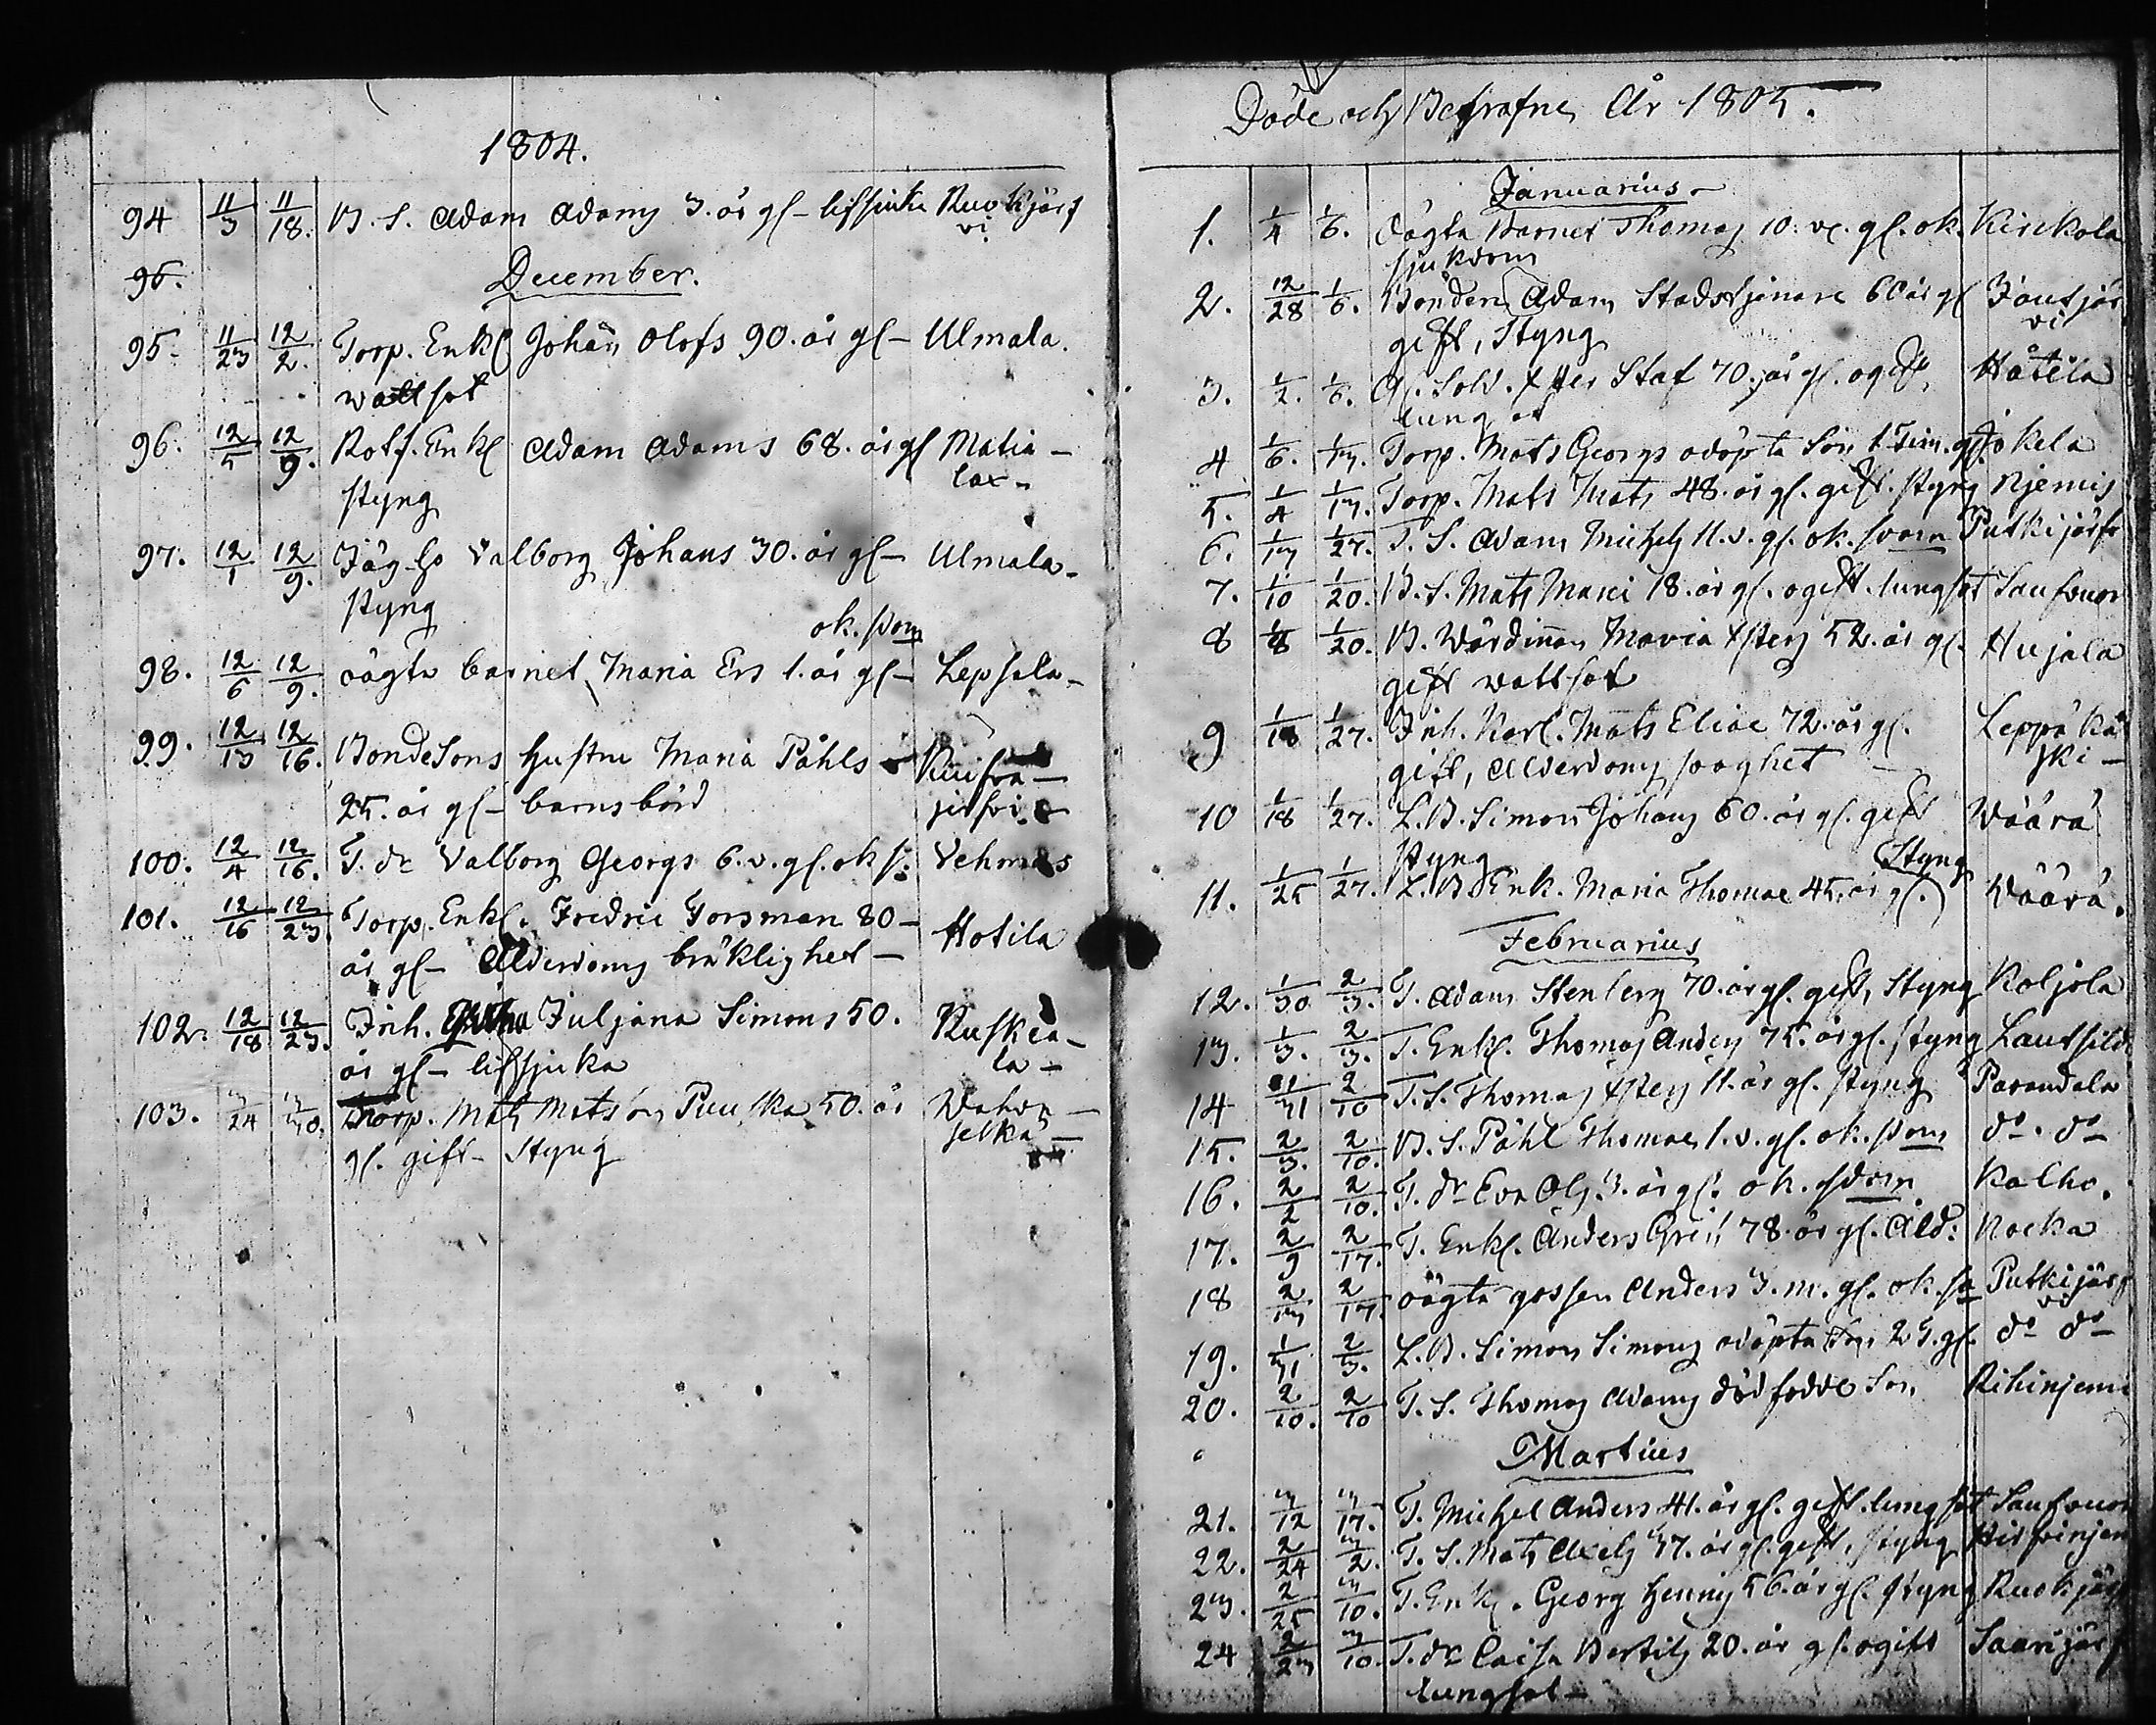 1804.
94 11/3 11/18. B. S. Adam Adams 3. år gl- lifsiuka Ruokjärf
vi.
96. December.
95. 11/23 12/2. Torp. Enkl. Johan Olofs 90. år gl- Ulmala.
wattsot
96. 12/5 12/9. Rotf. Enkl Adam Adams 68. år gl Matia-
styng lax-
97. 12/1 12/9. Jäg. Valborg Johans 30. år gl- Ulmala-
styng
ok. sdom
98. 12/6 12/9. oägta barnet Maria Ers 1. år gl- Lepsala-
99. 12/13 12/16. BondeSons hustru Maria Påhls
25. år gl- barnsbörd
100. 12/4 12/16. T. dr Valborg Georgs 6. v. gl. ok s: Vehmas
101. 12/16 12/23. Torp. Enkl. Fredric Forsman 80-
år gl- Ålderdoms bräklighet- Hotila
102. 12/18 12/23. Inh. Juljana Simons 50. Ruskea-
år gl- lifsjuka la-
103. 3/24 3/30. Torp. Mats Matson Puuska 50. år Wahva-
gl. gift- Styng selkä-
Döde och Begrafne År 1805.
Januarius-
1. 1/4 1/6. Oägta Barnet Thomas 10. v. gl. ok. Kirckola
sjukdom
2. 12/28 1/6. Bonden Adam Stadstjenare 60 år gl Jautjär
gift, Styng vi
3. 1/2. 1/6. Gl. Sold. Xster Staf 70. år gl. ogift, Håtila
lungsot
4 1/6. 1/13. Torp. Mats Georgs odöpta Son 1 Tim. gl. Jokela
5. 1/4 1/13. Torp. Mats Mats 48. år gl. gift. styng Njemis
6. 1/13 1/27. T. S. Adam Michels 11. v. gl. ok. sdom Putkijärf
7. 1/10 1/20. B. S. Mats Marci 18. år gl. ogift. lungsot Saufvuor
8 1/8 1/20. B. Värdinnan Maria Xsters 52. år gl. Hujala
gift wattsot
9 1/18 1/27. Inh. Karl. Mats Eliae 72. år gl. Leppäkå
gift, Ålderdoms svaghet ski-
10 1/18 1/27. L. B. Simon Johans 60. år gl. gift Wäärä
styng Styng
11. 1/25 1/27. L. B. Enk. Maria Thomae 45. år gl. Wäärä.
Februarius
12. 1/30 2/3. T. Adam Stenberg 70. år gl. gift, Styng Koljola
13. 1/3. 2/3. T. Enkl. Thomas Anders 75. år gl. styng Lautsild
14 1/31 2/10 T. S. Thomas Xsters 11. år gl. styng Parandala
15. 2/3. 2/10. B. S. Påhl Thomae 1. v. gl. ok. sdom do. do
16. 2/2 2/10. T. dr Eva Ols. 3. år gl. ok. sdom Kalho.
17. 2/9 2/17. T. Enkl. Anders Grels 78. år gl. Åld: Kocka
18 2/13 2/17. oägta gossen Anders 3. m. gl. ok. sd Putkijärf
vi
19. 1/31 2/3. L. B. Simon Simons odöpta Son 2 T. gl. do do
20. 2/10. 2/10 T. S. Thomas Adams dödfödde Son Rihinjemi
Martius
21. 3/12 3/17. T. Michel Anders 41. år gl. gift. lungsot Saufvuor
22. 2/24 3/2. T. S. Mats Axels 37. år gl. gift, styng Hirfvinjem
23. 2/25 3/10. T. Enkl. Georg Henrics 56. år gl. styng Ruokjärf
24 2/23 3/10. T. dr Caisa Bertils 20. år gl. ogift Saarijärf
lungsot-